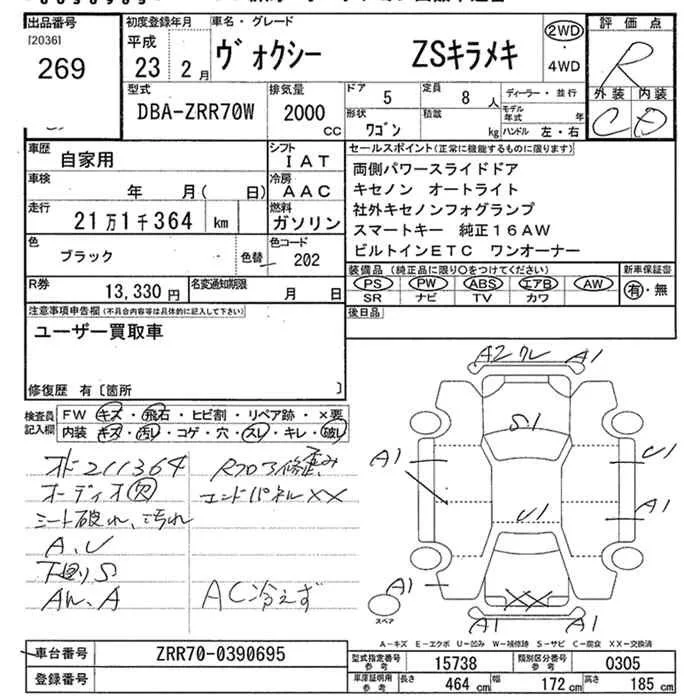 出品番号
[2036]
269
初度登録年月
平成
23 2 月
車名・グレード
ヴォクシー ZSキラメキ
2WD
・
4WD
評価点
R
外装 内装
C D
型式
DBA-ZRR70W
排気量
2000
CC
ドア
5
定員
8 人
ディーラー・並行
形状
ワゴン
積載
kg
モデル年式 年
ハンドル 左・右
車歴
自家用
シフト
IAT
車検
年 月( 日)
冷房
AAC
走行
21万1千364 km
燃料
ガソリン
色
ブラック
色替
色コード
202
R券
13,330 円
名変通知期限
月 日
セールスポイント(正常に機能するものに限ります)
両側パワースライドドア
キセノン オートライト
社外キセノンフォグランプ
スマートキー 純正16AW
ビルトインETC ワンオーナー
装備品(純正品に限り○をつけてください)
PS PW ABS エアB AW
SR ナビ TV カワ
新車保証書
有・無
後日品
注意事項申告欄(不具合内容等は具体的に記入して下さい)
ユーザー買取車
修復歴 有[箇所 ]
検査員記入欄
FW キズ・飛石・ヒビ割・リペア跡・×要
内装 キズ・汚レ・コゲ・穴・スレ・キレ・破レ
オド211364
オーディオ欠
シート破れ、汚れ
A、U
下廻りS
AW、A
Rフロア修歪み
エンドパネルXX
AC冷えず
A2 ワレ A1
S1
A1
U1
A1
U1
A1
XX
A1
A1
スペア
A-キズ E-エクボ U-凹み W-補修跡 S-サビ C-腐食 XX-交換済
車台番号
ZRR70-0390695
登録番号
型式指定番号
参考
15738
類別区分番号
参考
0305
車庫証明用
参考
長さ
464 cm
幅
172 cm
高さ
185 cm